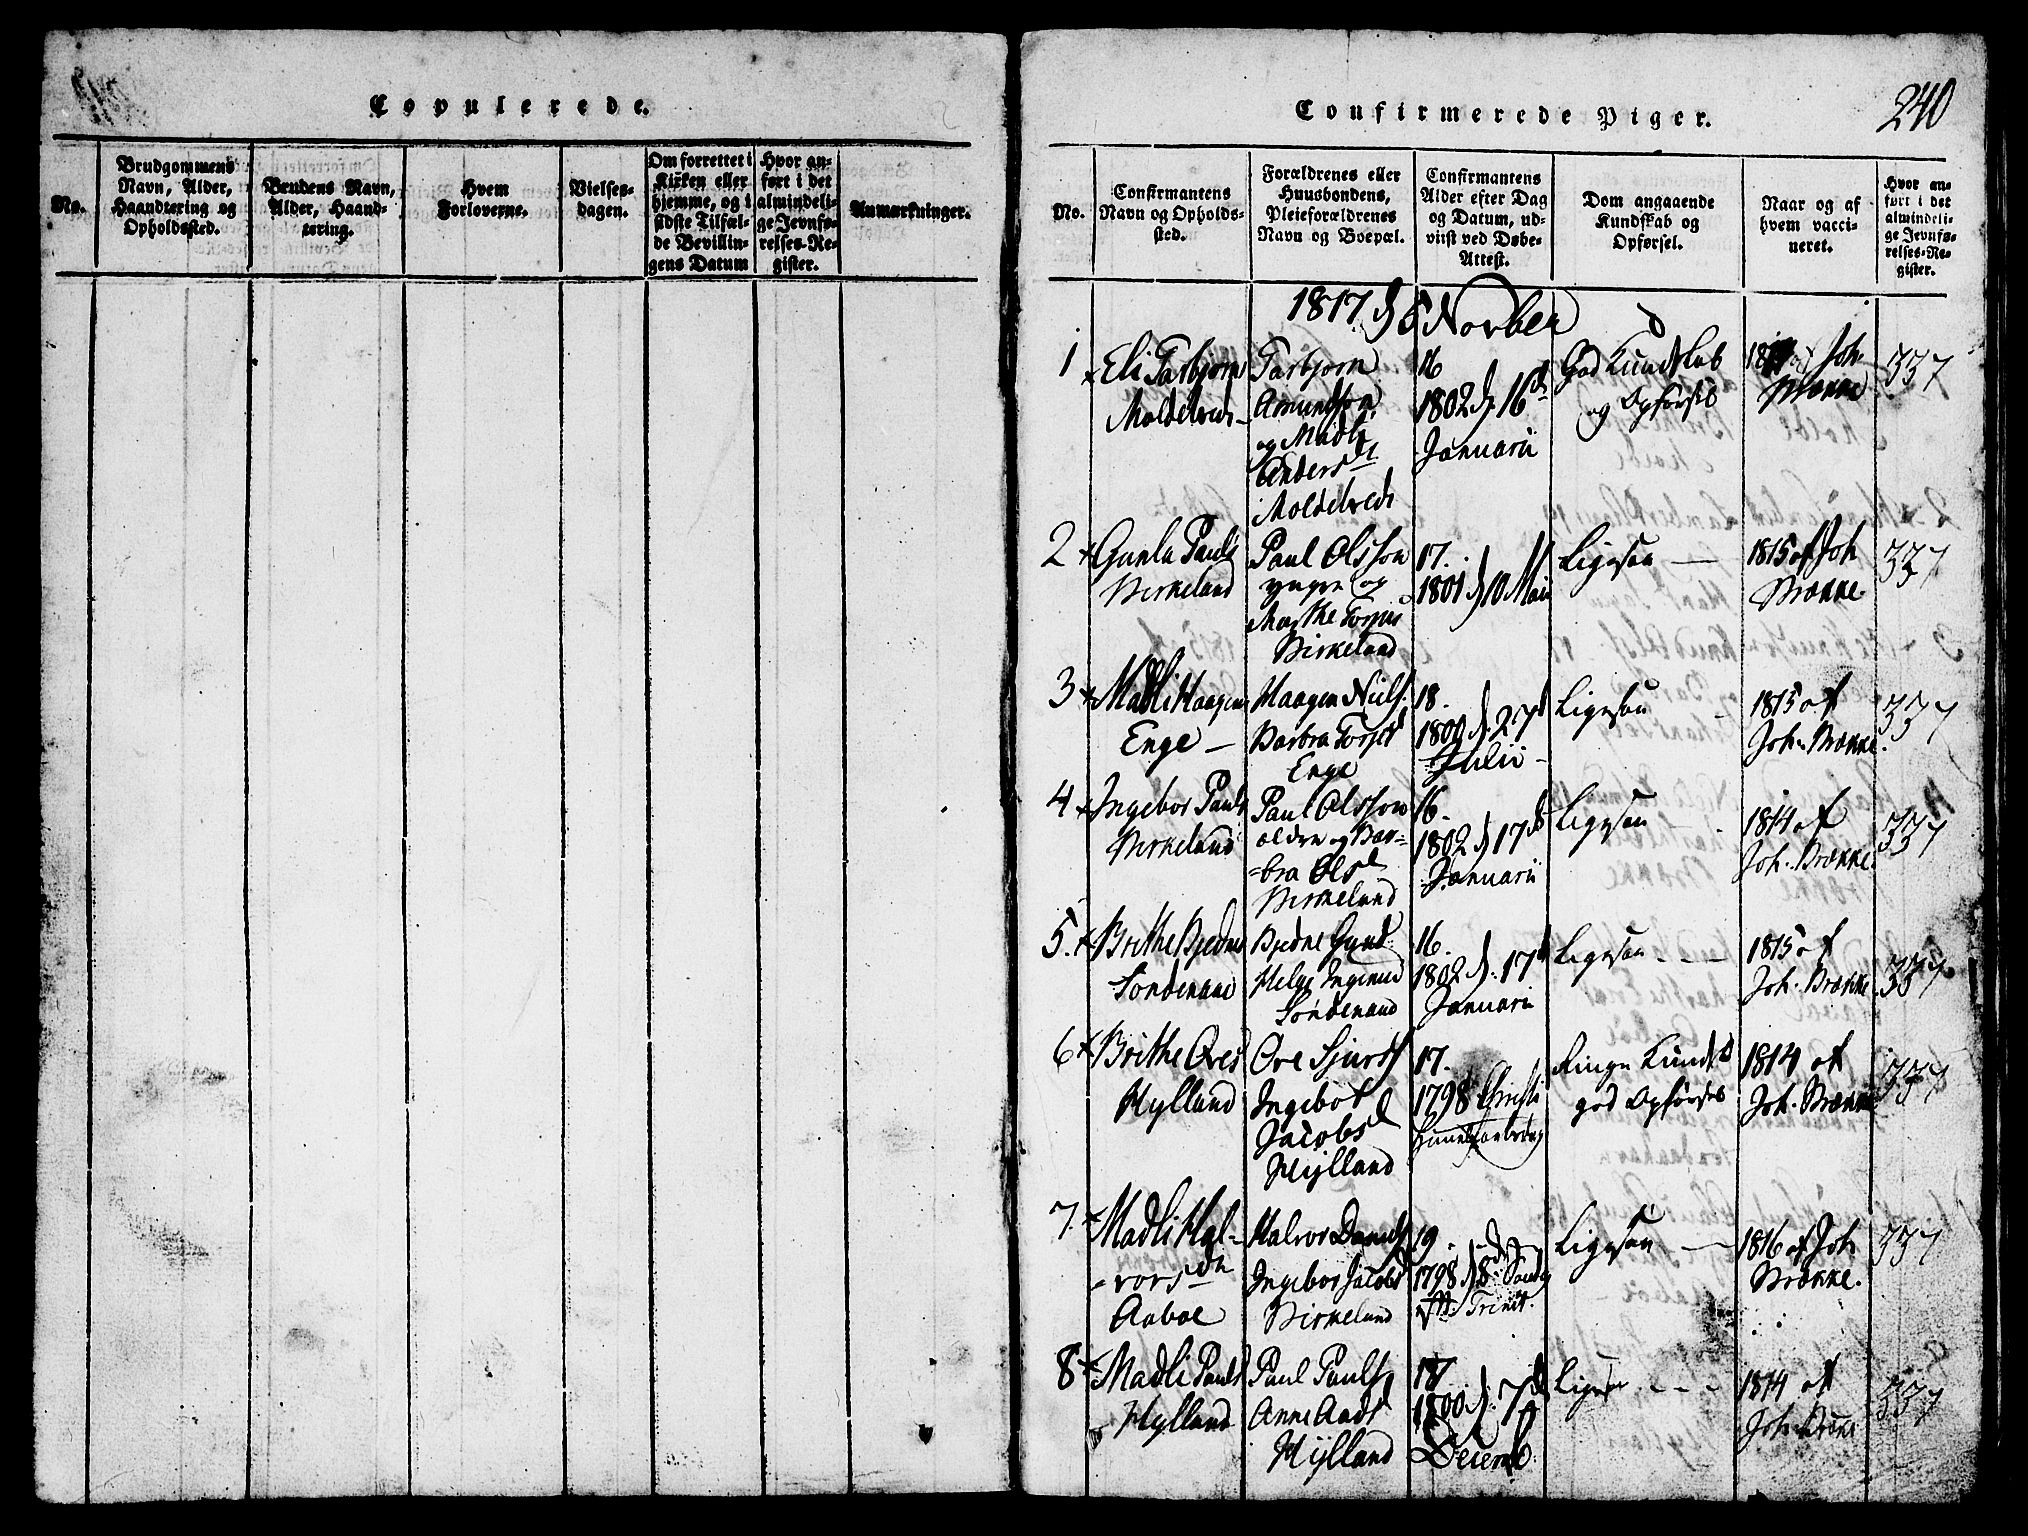 Copulerede.
No.
Brudgommens
Navn, Alder,
Haandtering og
Opholdssted.
Brudens Navn,
Alder, Haand-
tering.
Hvem
Forloverne.
Vielses-
dagen.
Om forrettet i
Kirken eller
hjemme, og i
sidste Tilfæl-
de Bevillin-
gens Datum
Hvor an-
ført i det
almindeli-
ge Jevnfø-
relses-Re-
gister.
Anmærkninger.
Confirmerede Piger.
240
No.
Confirmantens
Navn og Opholds-
sted.
Forældrenes eller
Huusbondens,
Pleieforældrenes
Navn og Boepæl.
Confirmantens
Alder efter Dag
og Datum, ud-
viist ved Døbe-
Attest.
Dom angaaende
Kundskab og
Opførsel.
Naar og af
hvem vacci-
neret.
Hvor an-
ført i det
almindeli-
ge Jevnfø-
relses-Re-
gister.
1817 d 8 Novber
1
Eli Tarbjørns
Moldebred
Tarbjørn
Amunds
og Madli
Anders
Moldebred
16
1802 d. 16
Januarii
God Kundskab
og Opførsel
af Joh
Brække
337
2
Gunla Pauls
Birkeland
Paul Olsson
yngre og
Marthe
Birkeland
17.
1801 d 10 Maii
Ligesaa
1815 af Joh
Brække
337
3
Madli Haagens
Enge
Haagen Niels
Barbra
Enge
18.
1800 d. 27
Julii
Ligesaa
1815 af
Joh. Brække.
337
4
Ingebor Pauls
Birkeland
Paul Olsson
ældre og Bar-
bra Ols
Birkeland
16.
1802 d 17
Januarii
Ligesaa
1814 af
Joh. Brække
337
5.
Brithe Bjedne
Søndenaae
Bjedne
Helge
Søndenaae
16.
1802 d. 17
Januarii
Ligesaa
1815 af
Joh. Brække
337
6
Brithe Ores
Hylland
Ore Sjurs
Ingebor
Jacobs
Hylland
17.
1798 Christi
Ringe Kundsk
god Opførsel
1814 af
Joh. Brække
337
7.
Madli Hal-
vors
Aaboe
Halvor Daniels
Ingebor Jacobs
Birkeland
19.
1798 d 8 Sønd
eft. Trinit.
Ligesaa
1816 af Joh
Brække.
337
8
Madli Pauls
Hylland
Paul Pauls
Anne Aads
Hylland
1800 d. 7
Decemb
Ligesaa
1814 af
Joh. Brække
337